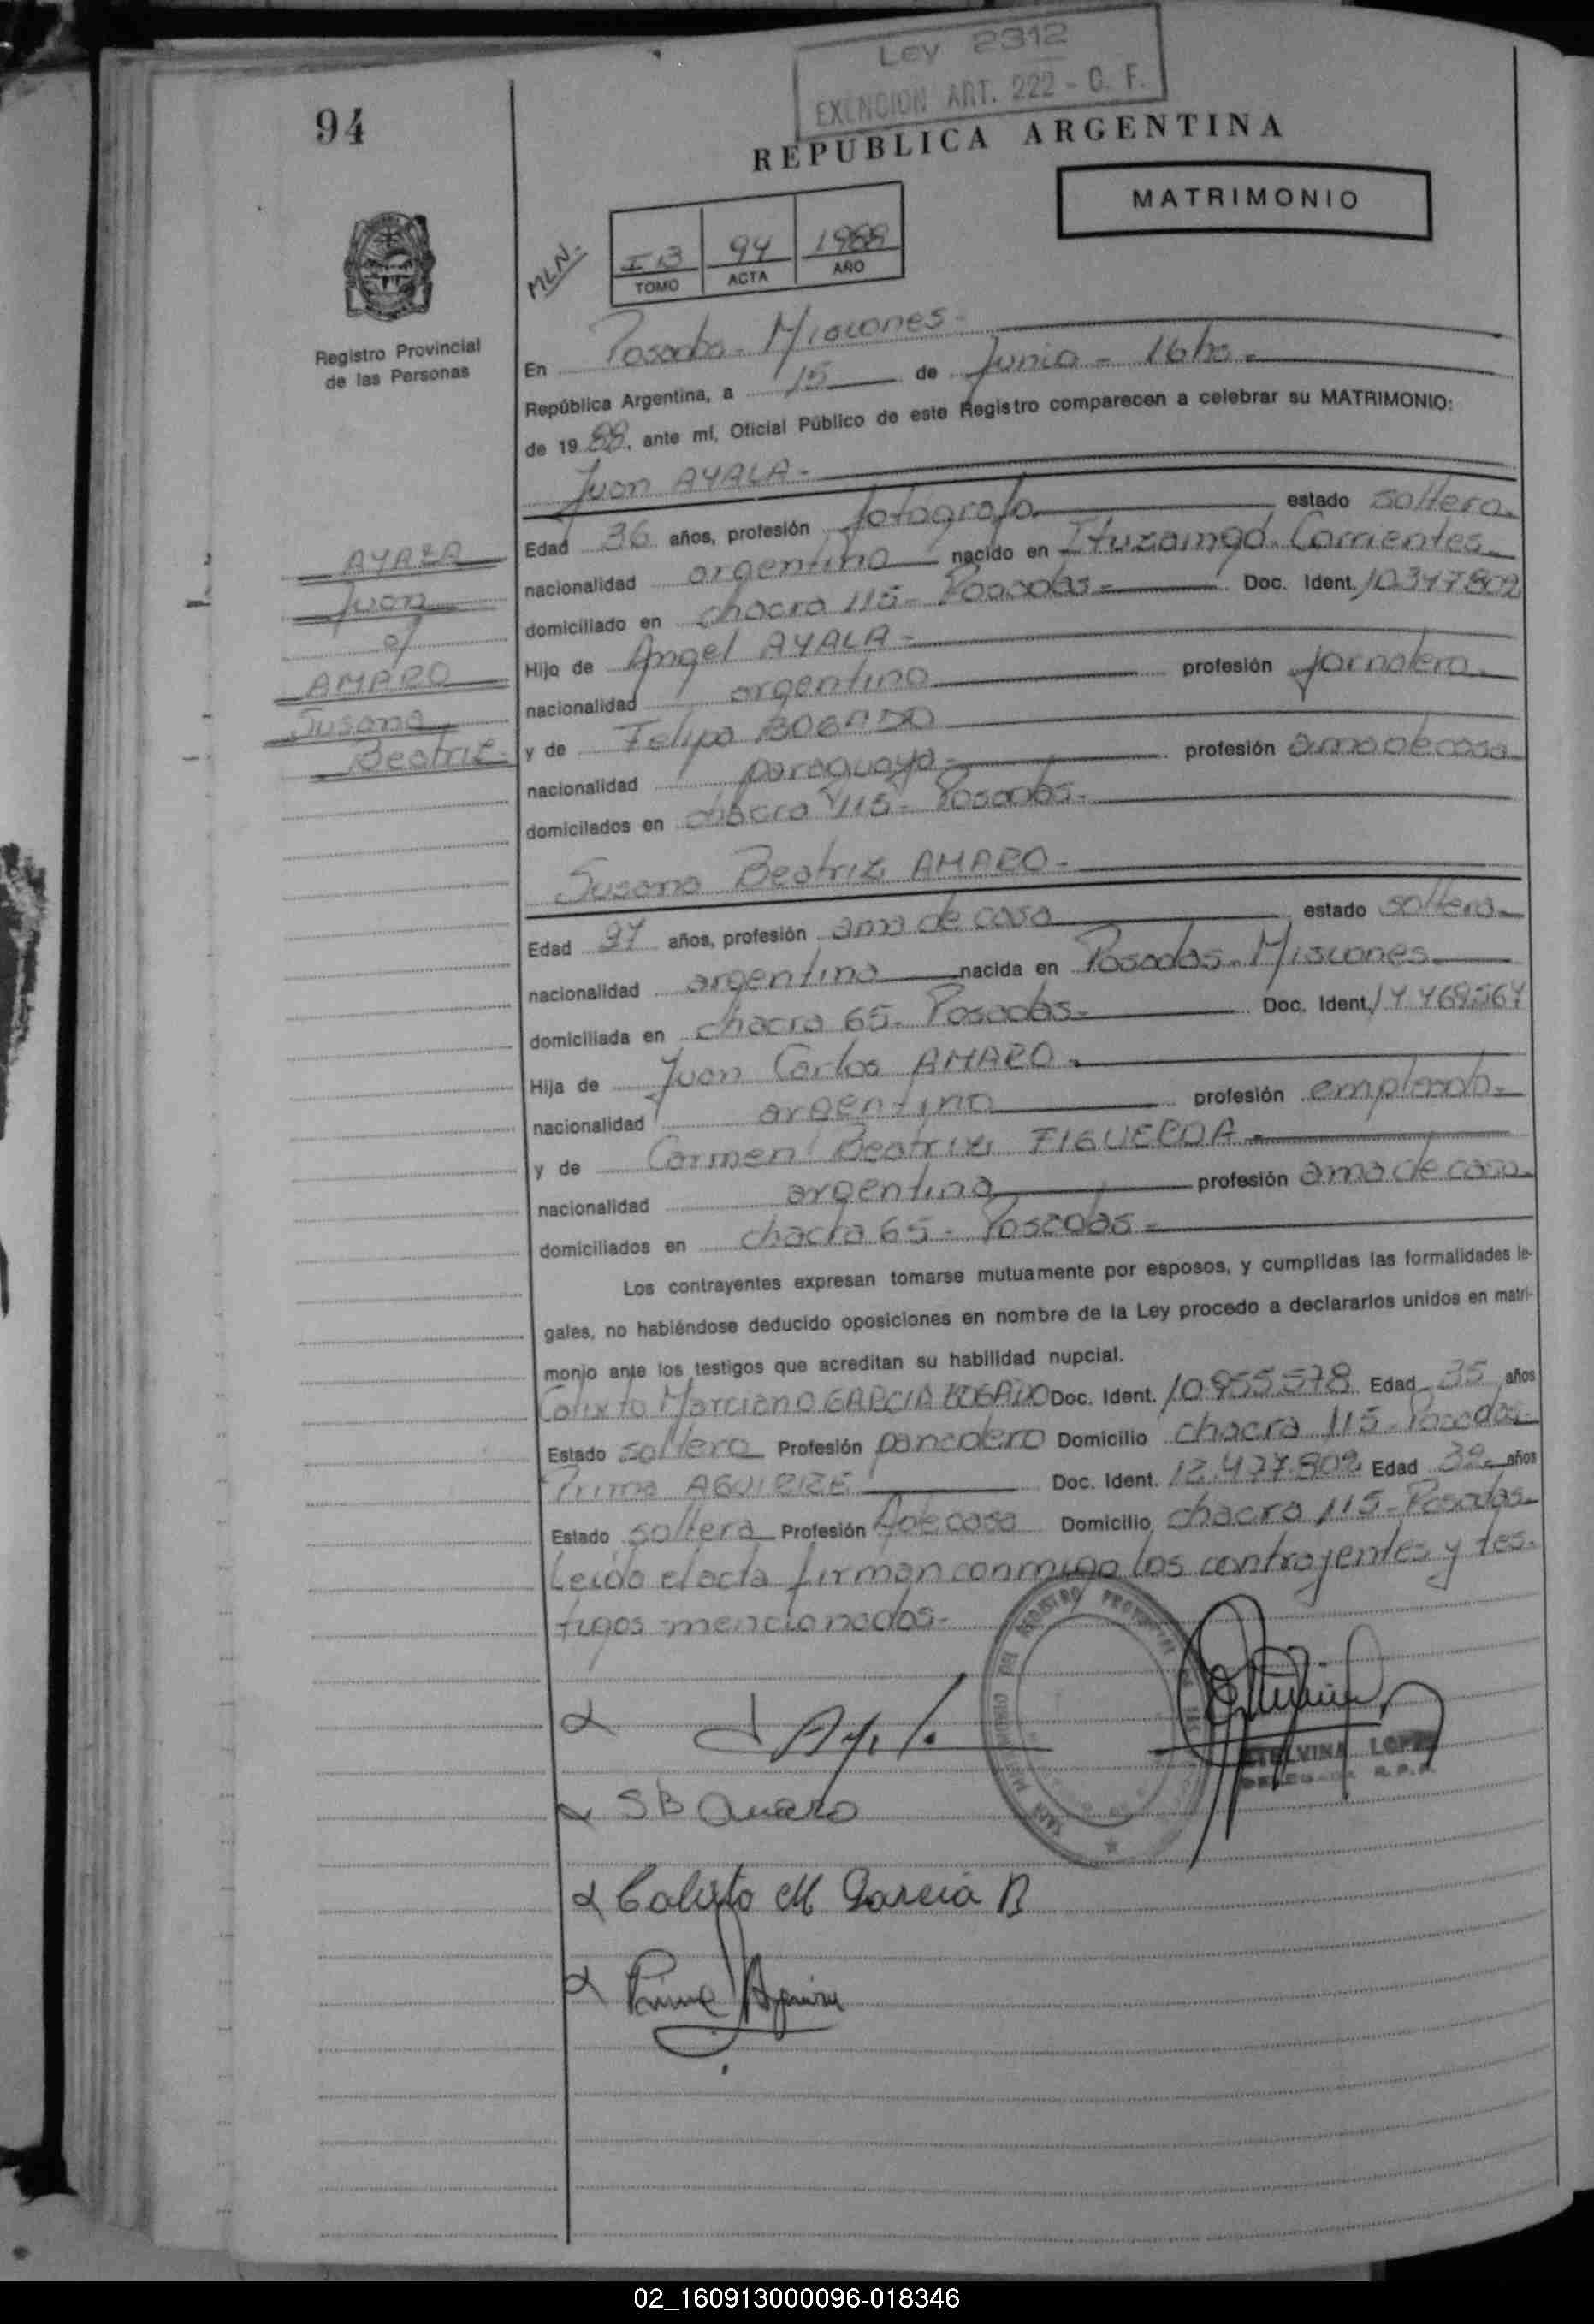 Ley 2312
EXENCION ART. 222 - C. F.
94
REPUBLICA ARGENTINA
MATRIMONIO
MLN.
94 1988
TOMO ACTA AÑO
Registro Provincial
de las Personas
En Posadas - Misiones -
República Argentina, a 15 de Junio - 16 hs -
de 19 88, ante mí, Oficial Público de este Registro comparecen a celebrar su MATRIMONIO:
Juan AYALA -
Edad 36 años, profesión fotógrafo estado soltero.
nacionalidad argentino nacido en Ituzaingó. Corrientes.
domiciliado en chacra 115 - Posadas - Doc. Ident. 10347802
Hijo de Angel AYALA -
nacionalidad argentino profesión jornalero.
y de Felipa BOGADO
nacionalidad paraguaya - profesión ama de casa
domicilados en chacra 115 - Posadas.
AYALA
Juan
c/
AMARO
Susana
Beatriz.
Susana Beatriz AMARO -
Edad 27 años, profesión ama de casa estado soltera
nacionalidad argentina nacida en Posadas - Misiones.
domiciliada en chacra 65 - Posadas - Doc. Ident. 14469564
Hija de Juan Carlos AMARO.
nacionalidad argentino profesión empleado.
y de Carmen Beatriz FIGUEROA -
nacionalidad argentina profesión ama de casa.
domiciliados en chacra 65 - Posadas -
Los contrayentes expresan tomarse mutuamente por esposos, y cumplidas las formalidades le-
gales, no habiéndose deducido oposiciones en nombre de la Ley procedo a declararlos unidos en matri-
monio ante los testigos que acreditan su habilidad nupcial.
Calixto Marciano GARCIA BOGADO Doc. Ident. 10.955.578 Edad 35 años
Estado soltero Profesión panadero Domicilio chacra 115 - Posadas.
Prima AGUIRRE Doc. Ident. 12.477.802 Edad 32 años
Estado soltera Profesión A de casa Domicilio chacra 115 - Posadas.
Leída el acta firman conmigo los contrayentes y tes-
tigos mencionados -
REGISTRO PROVINCIAL DE LAS
J Ayala
ETELVINA LOPEZ
DELEGADA R.P.P.
SB Amaro
Calixto M Garcia B
Prima Aguirre
02_160913000096-018346